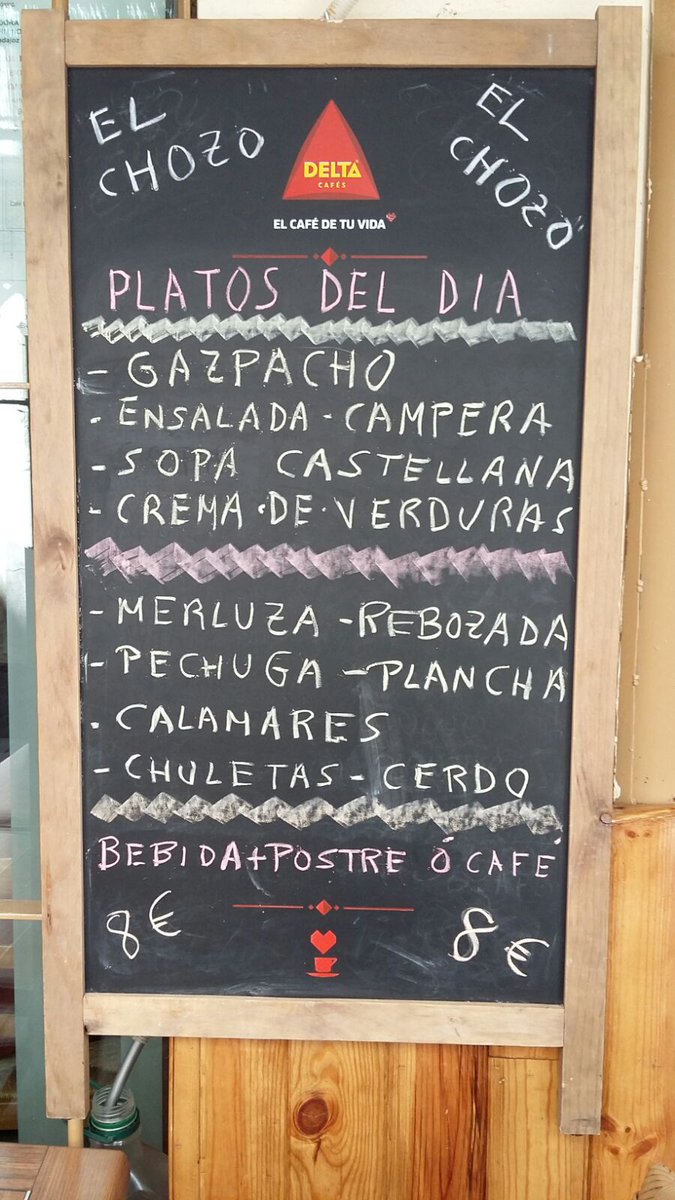 EL CHOZO
EL CHOZO
DELTA
CAFÉS
EL CAFÉ DE TU VIDA
PLATOS DEL DIA
- GAZPACHO
- ENSALADA - CAMPERA
- SOPA CASTELLANA
- CREMA · DE · VERDURAS
- MERLUZA - REBOZADA
- PECHUGA - PLANCHA
- CALAMARES
- CHULETAS - CERDO
BEBIDA + POSTRE Ó CAFÉ
8€ 8€